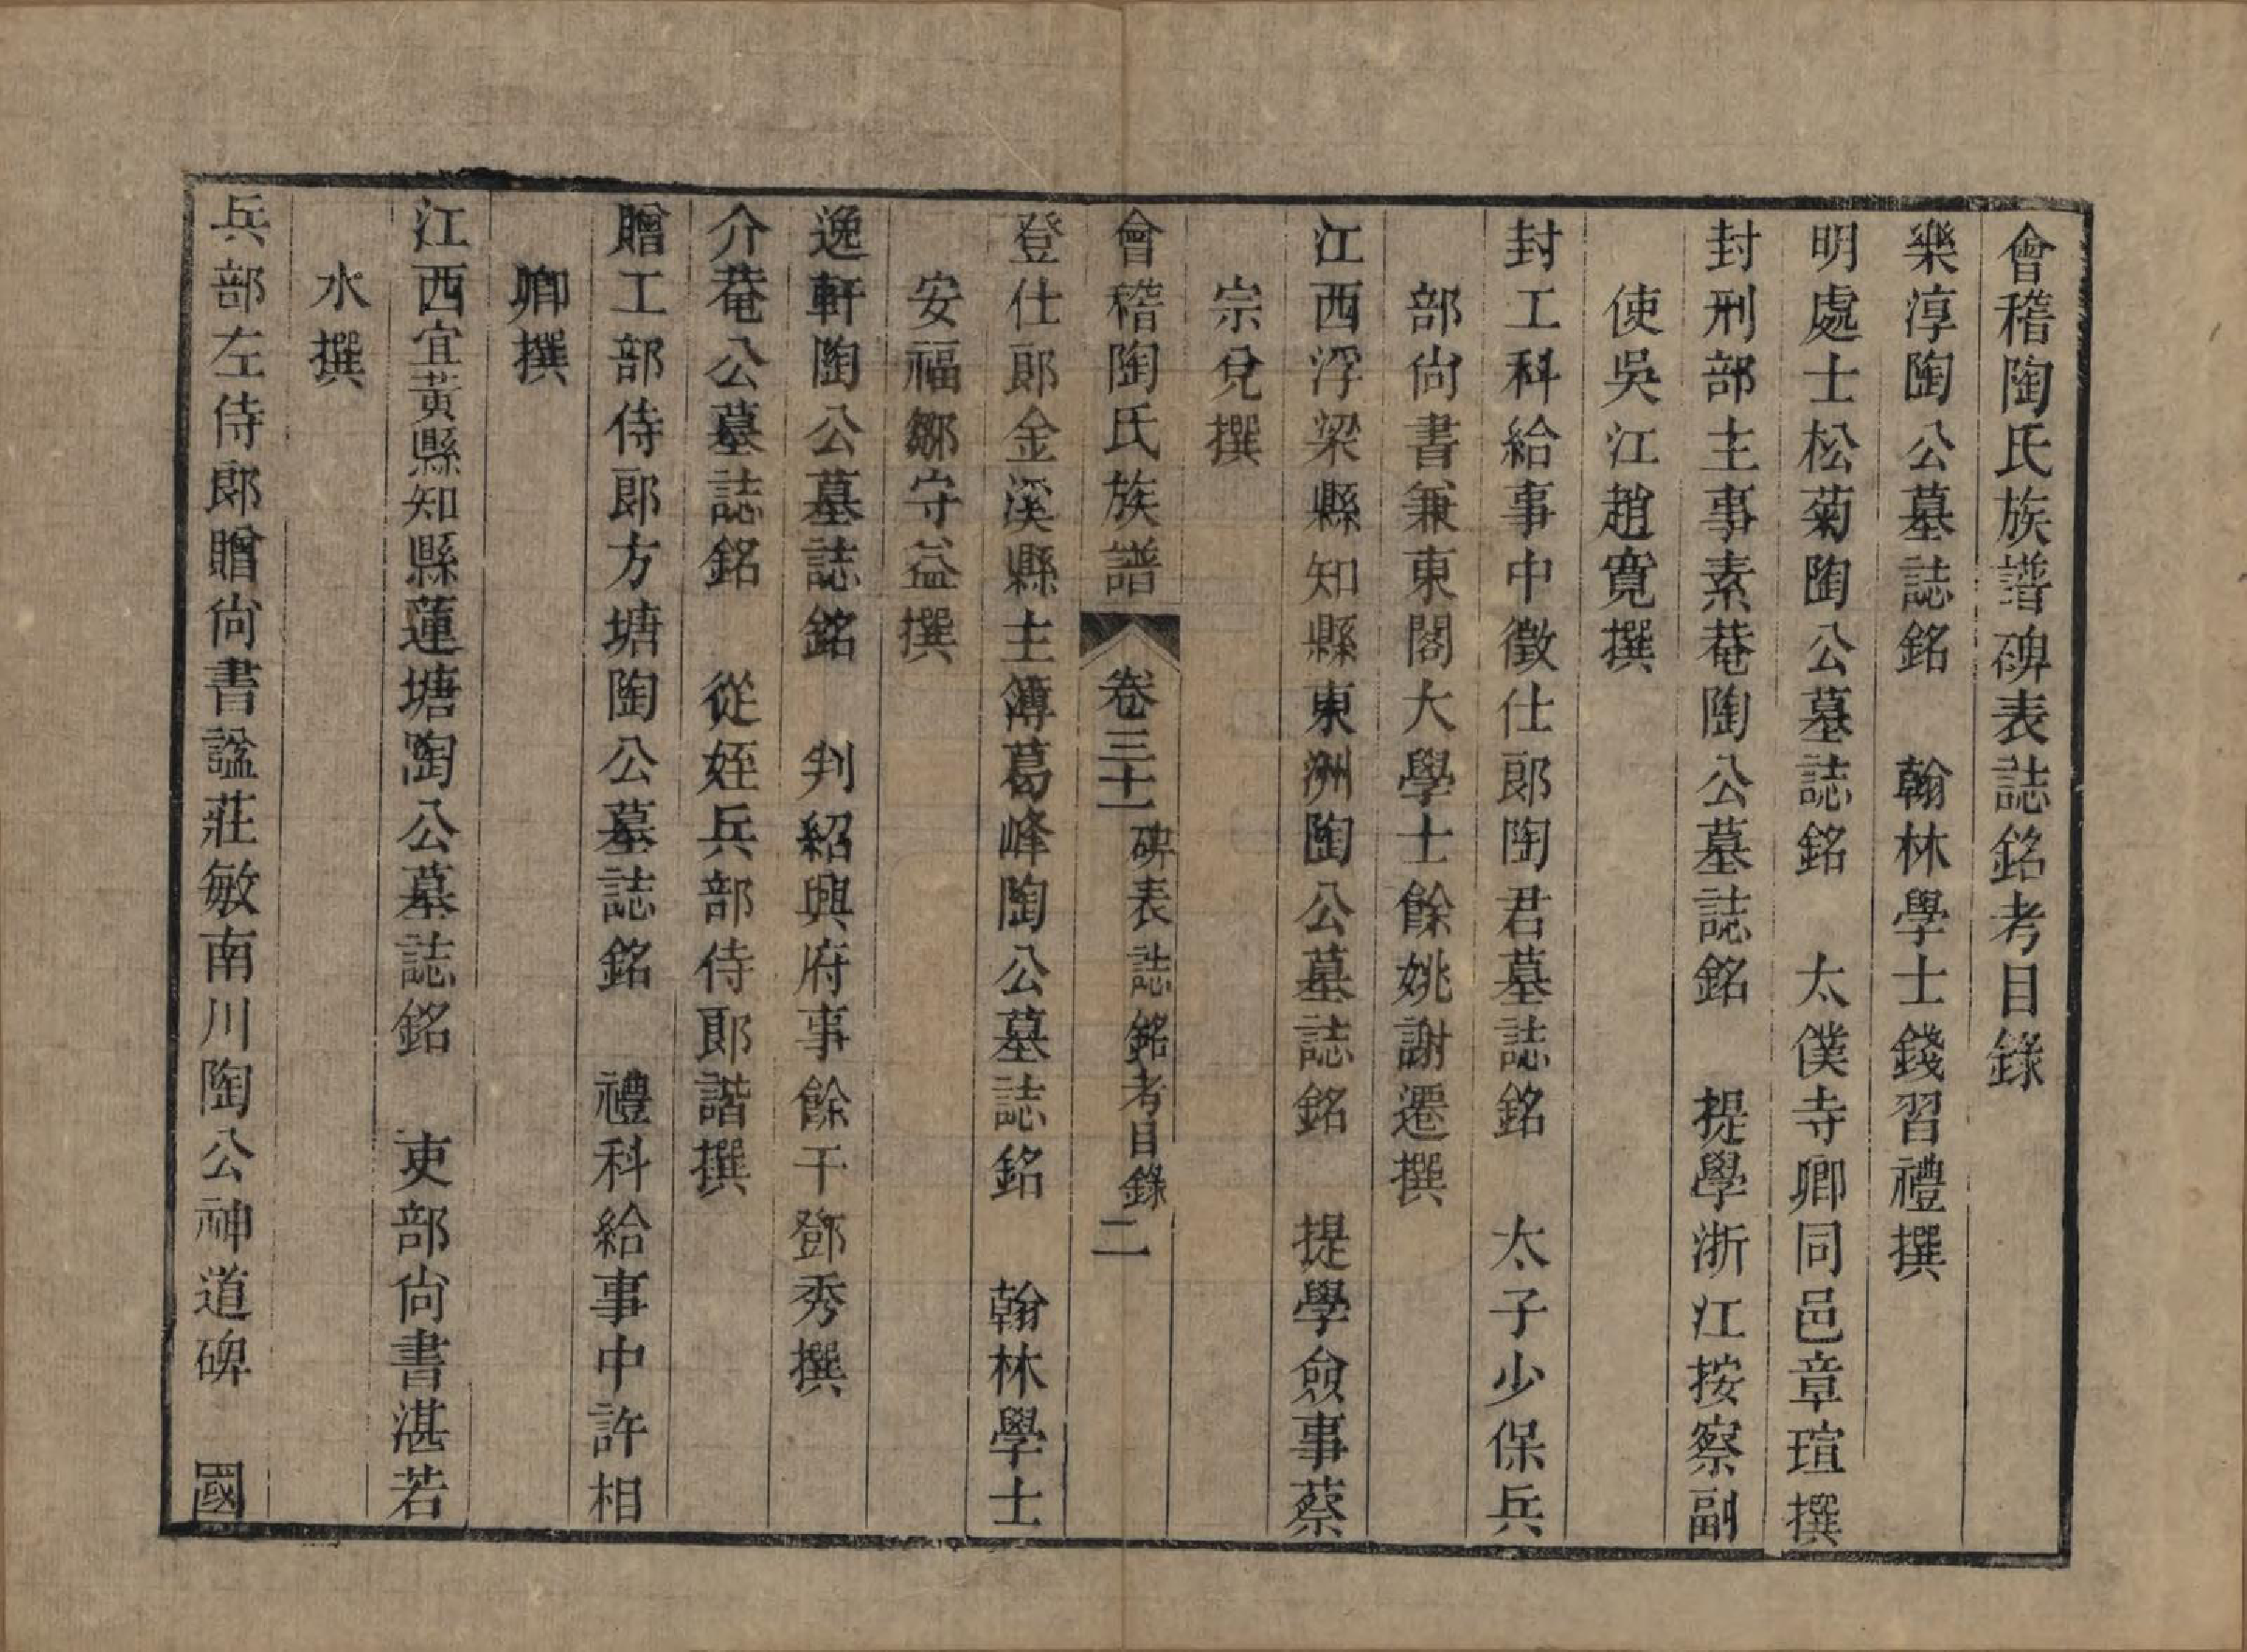 會稽陶氏族譜碑表誌銘考目錄
樂淳陶公墓誌銘　翰林學士錢習禮撰
明處士松菊陶公墓誌銘　太僕寺卿同邑章瑄撰
封刑部主事素菴陶公墓誌銘　提學浙江按察副
使吳江趙寬撰
封工科給事中徵仕郎陶君墓誌銘　太子少保兵
部尙書兼東閣大學士餘姚謝遷撰
江西浮梁縣知縣東洲陶公墓誌銘　提學僉事蔡
宗兌撰
會稽陶氏族譜　卷三十一　碑表誌銘考目錄　二
登仕郎金溪縣主簿葛峰陶公墓誌銘　翰林學士
安福鄒守益撰
逸軒陶公墓誌銘　判紹興府事餘干鄧秀撰
介菴公墓誌銘　從姪兵部侍郎諧撰
贈工部侍郎方塘陶公墓誌銘　禮科給事中許相
卿撰
江西宜黃縣知縣蓮塘陶公墓誌銘　吏部尙書湛若
水撰
兵部左侍郎贈尙書諡莊敏南川陶公神道碑　國